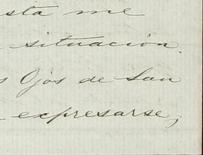 sta me
situación.
s Ojos de San
expresarse,